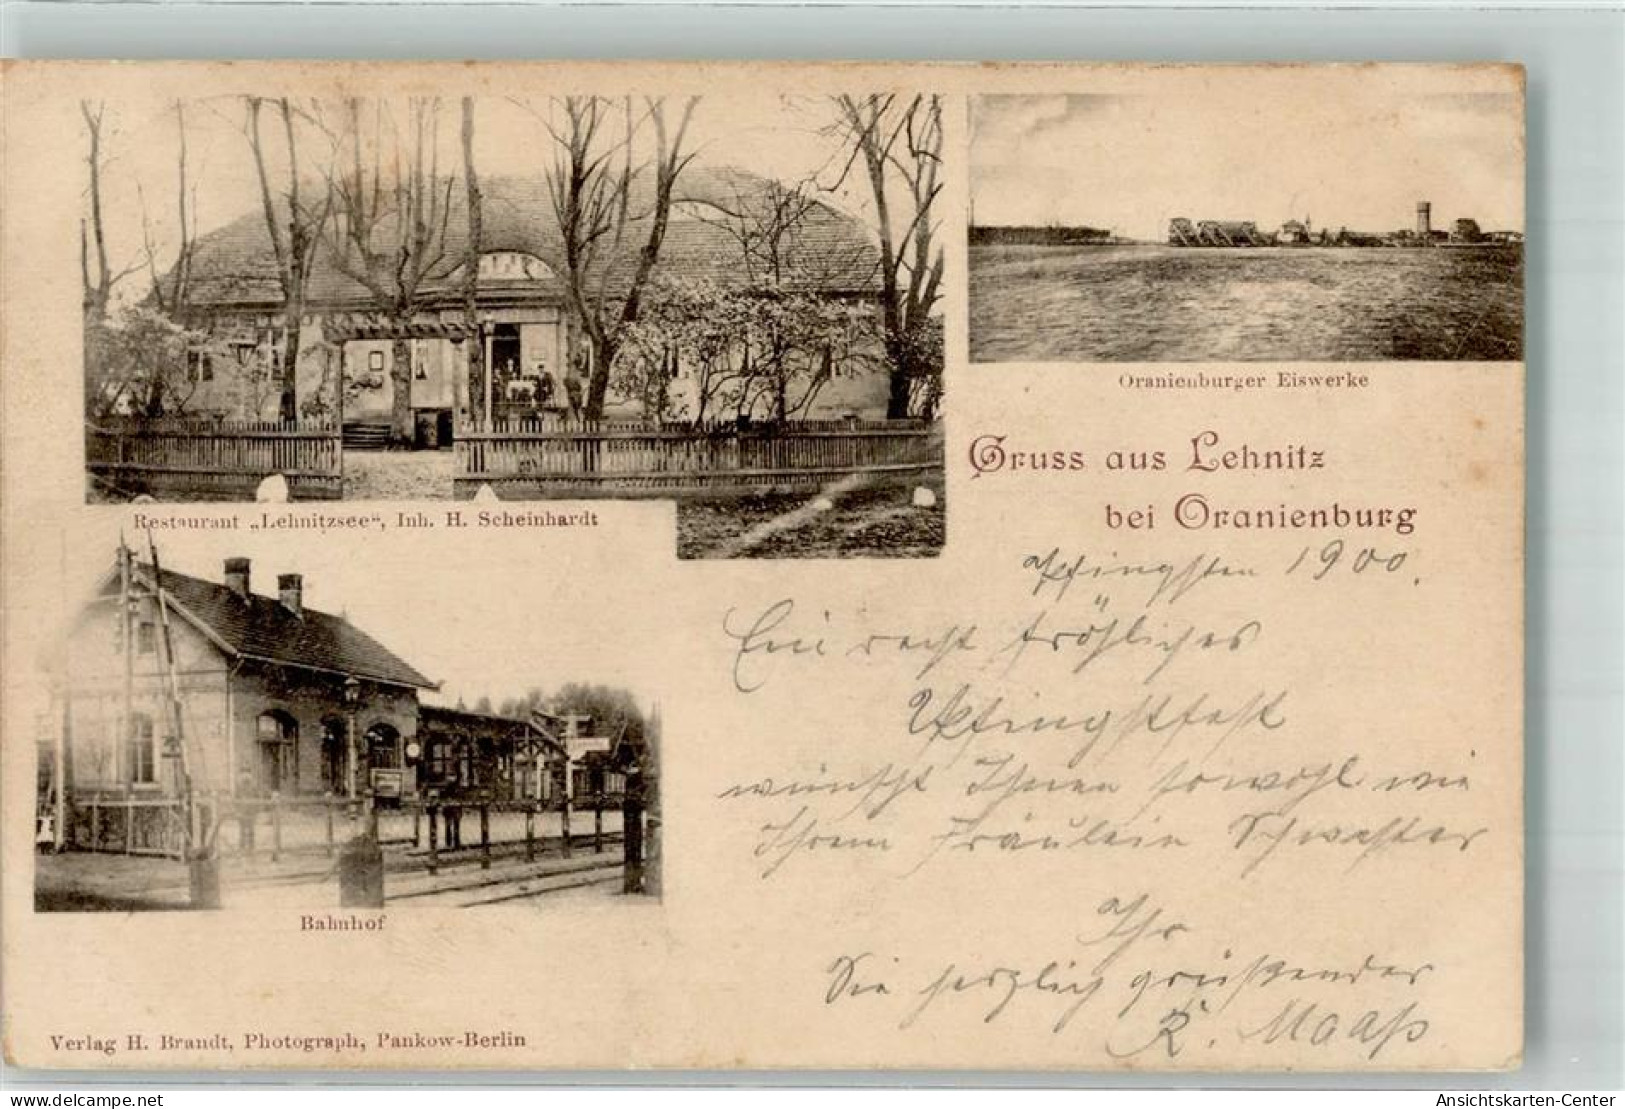 Oranienburger Eiswerke
Gruss aus Lehnitz
bei Oranienburg
Restaurant „Lehnitzsee“, Inh. H. Scheinhardt
Pfingsten 1900.
Ein recht fröhliches
Pfingstfest
wünscht Ihnen sowohl wie
Ihrem Fräulein Schwester
Ihr
Sie herzlich grüßender
R. Maaß
Bahnhof
Verlag H. Brandt, Photograph, Pankow-Berlin
www.delcampe.net
Ansichtskarten-Center